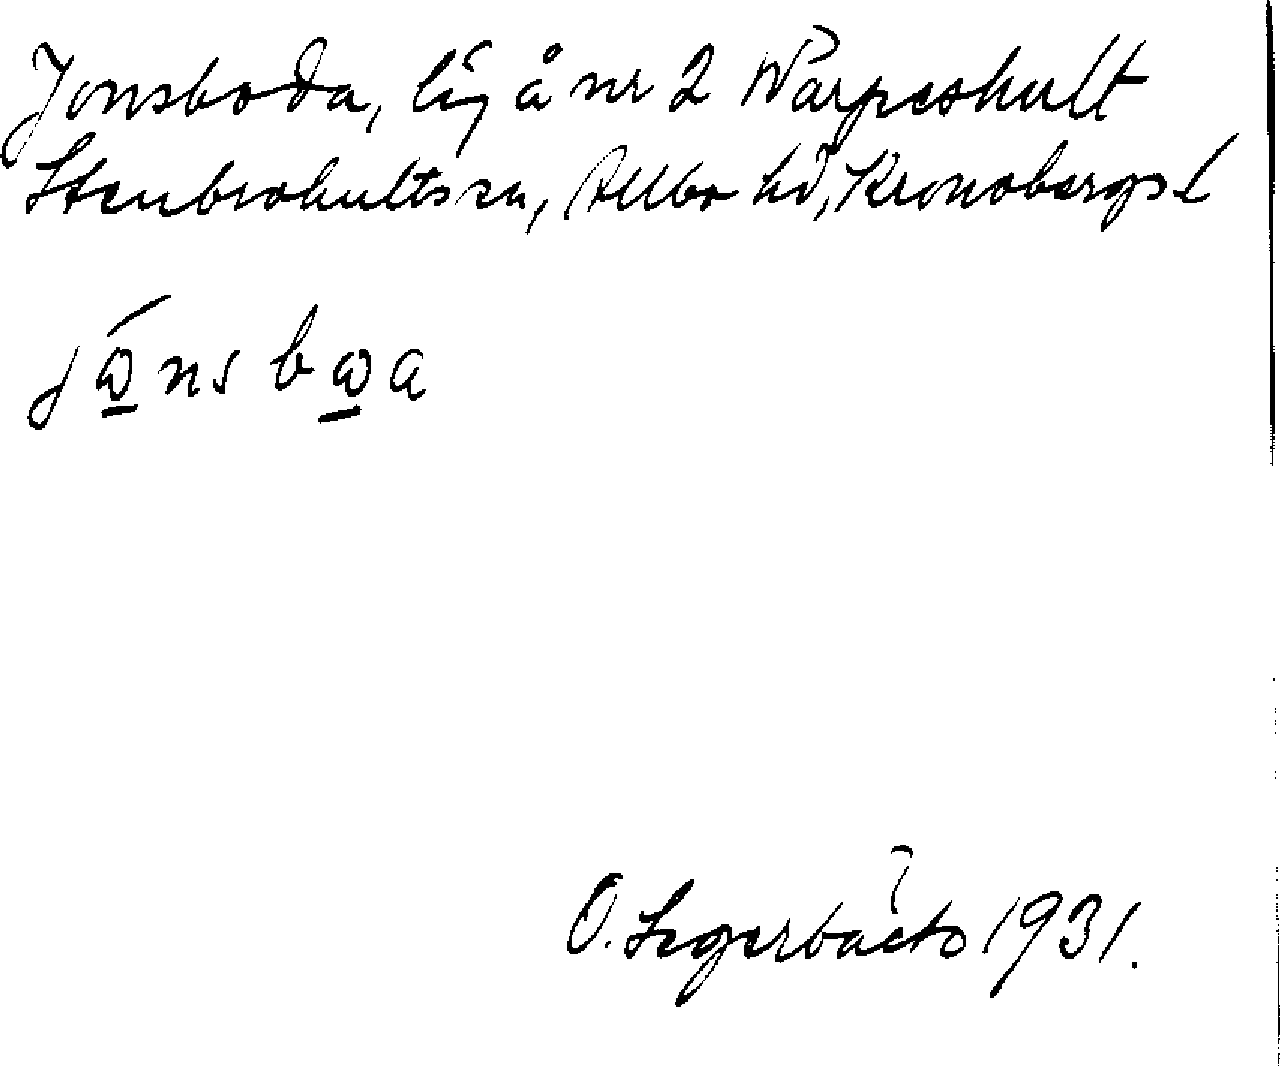 Jonsboda, lg å nr 2 Warpeshult
Stenbrohults sn, Allbo hd, Kronobergs l
O. Segerbäck 1931.